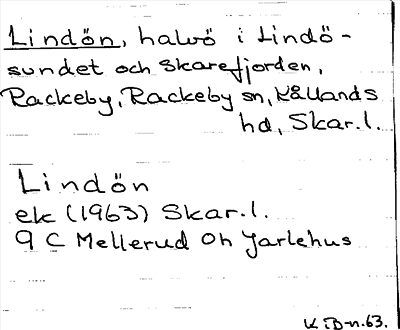 Lindön, halvö i Lindö-
sundet och Skarefjorden,
Rackeby, Rackeby sn, Kållands
hd, Skar.l.
Lindön
ek (1963) Skar.l.
9 C Mellerud Oh Jarlehus
K iD-n.63.